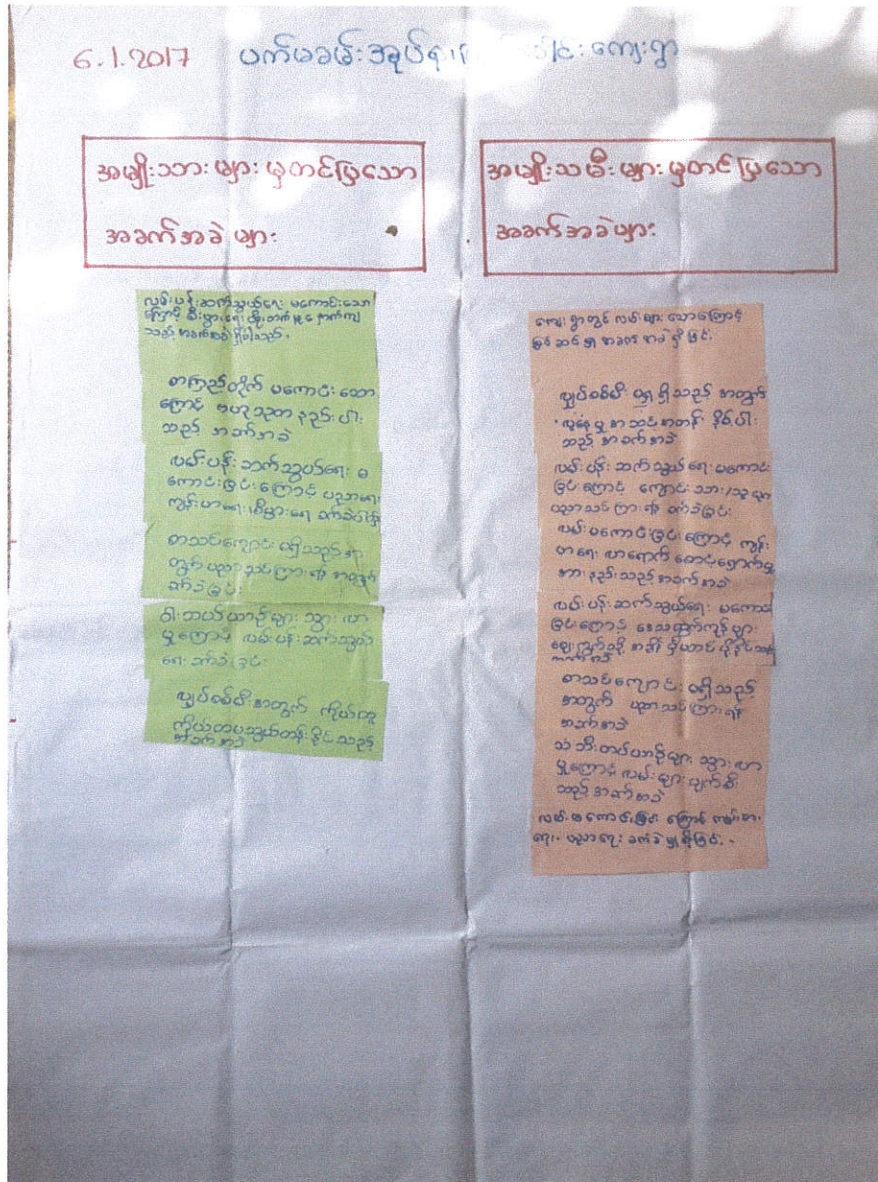 6.1.2017 ပက်မခမ်းအုပ်စု ကျေးရွာ
အမျိုးသားများ မှတင်ပြသော
အခက်အခဲများ
လမ်းပန်းဆက်သွယ်ရေး မကောင်းသော
ကြောင့် စီးပွားရေး ဖွံ့ဖြိုးတက်မှု နောက်ကျ
သည့် အခက်အခဲ ရှိပါသည်။
စာကြည့်တိုက် မကောင်းသော
ကြောင့် ဗဟုသုတ နည်းပါး
သည့် အခက်အခဲ
လမ်းပန်းဆက်သွယ်ရေး မ
ကောင်းခြင်းကြောင့် ပညာရေး
ကျန်းမာရေး စီးပွားရေး ခက်ခဲ
စာသင်ကျောင်း မရှိသည့်အ
တွက် ပညာသင်ကြားရန် အတွက်
ခက်ခဲခြင်း
ဝါးဘယ်ယာဉ်များ သွားလာ
မှုကြောင့် လမ်းပန်းဆက်သွယ်
ရေး ခက်ခဲခြင်း
လျှပ်စစ်မီးအတွက် ကိုယ်ထူ
ကိုယ်ထမသွယ်တန်းနိုင်သည့်
အခက်အခဲ
အမျိုးသမီးများ မှတင်ပြသော
အခက်အခဲများ
ကျေးရွာတွင် လမ်းများသောကြောင့်
ပြင်ဆင်မှု အခက်အခဲရှိခြင်း
လျှပ်စစ်မီး မရရှိသည့် အတွက်
လူနေမှုအဆင့်အတန်း နိမ့်ပါး
သည့် အခက်အခဲ
လမ်းပန်းဆက်သွယ်ရေး မကောင်း
ခြင်းကြောင့် ကျောင်းသား/သူများ
ပညာသင်ကြားရန် ခက်ခဲခြင်း
လမ်းမကောင်းခြင်းကြောင့် ကျန်း
မာရေး လာရောက် စောင့်ရှောက်မှု
အားနည်းသည့် အခက်အခဲ
လမ်းပန်းဆက်သွယ်ရေး မကောင်း
ခြင်းကြောင့် ဒေသထွက်ကုန်များ
ဈေးကွက်သို့ အချိန်မီ မပို့နိုင်သည့်
အခက်အခဲ
စာသင်ကျောင်း မရှိသည့်
အတွက် ပညာသင်ကြားရန်
အခက်အခဲ
သံဘီးတပ်ယာဉ်များ သွားလာ
မှုကြောင့် လမ်းများ ပျက်စီး
သည့် အခက်အခဲ
လမ်းမကောင်းခြင်းကြောင့် ကျန်းမာ
ရေး၊ ပညာရေး ခက်ခဲမှုရှိခြင်း။